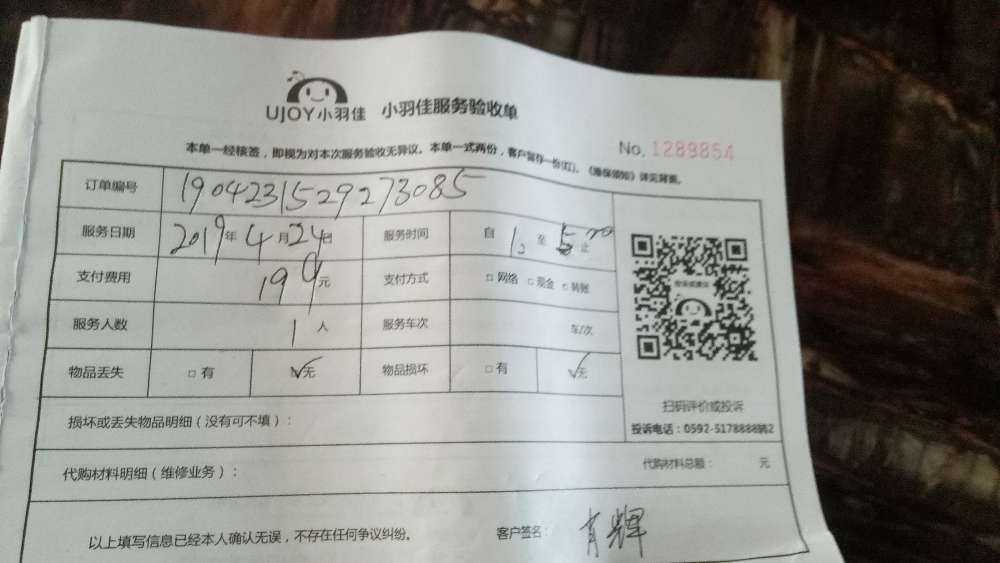 UJOY小羽佳 小羽佳服务验收单
本单一经核签，即视为对本次服务验收无异议。本单一式两份，客户留存一份(红)。《维保须知》详见背面。
No. 1289854
订单编号 1904231529273085
服务日期 2019年4月24日 服务时间 自 至 止
支付费用 199元 支付方式 □ 网络 □ 现金 □ 转账
服务人数 1人 服务车次 车/次
物品丢失 □ 有 ✓无 物品损坏 □ 有 ✓无
扫码评价或投诉
投诉电话：0592-5178888转2
损坏或丢失物品明细（没有可不填）：
代购材料明细（维修业务）： 代购材料总额： 元
以上填写信息已经本人确认无误，不存在任何争议纠纷。 客户签名： 肖辉